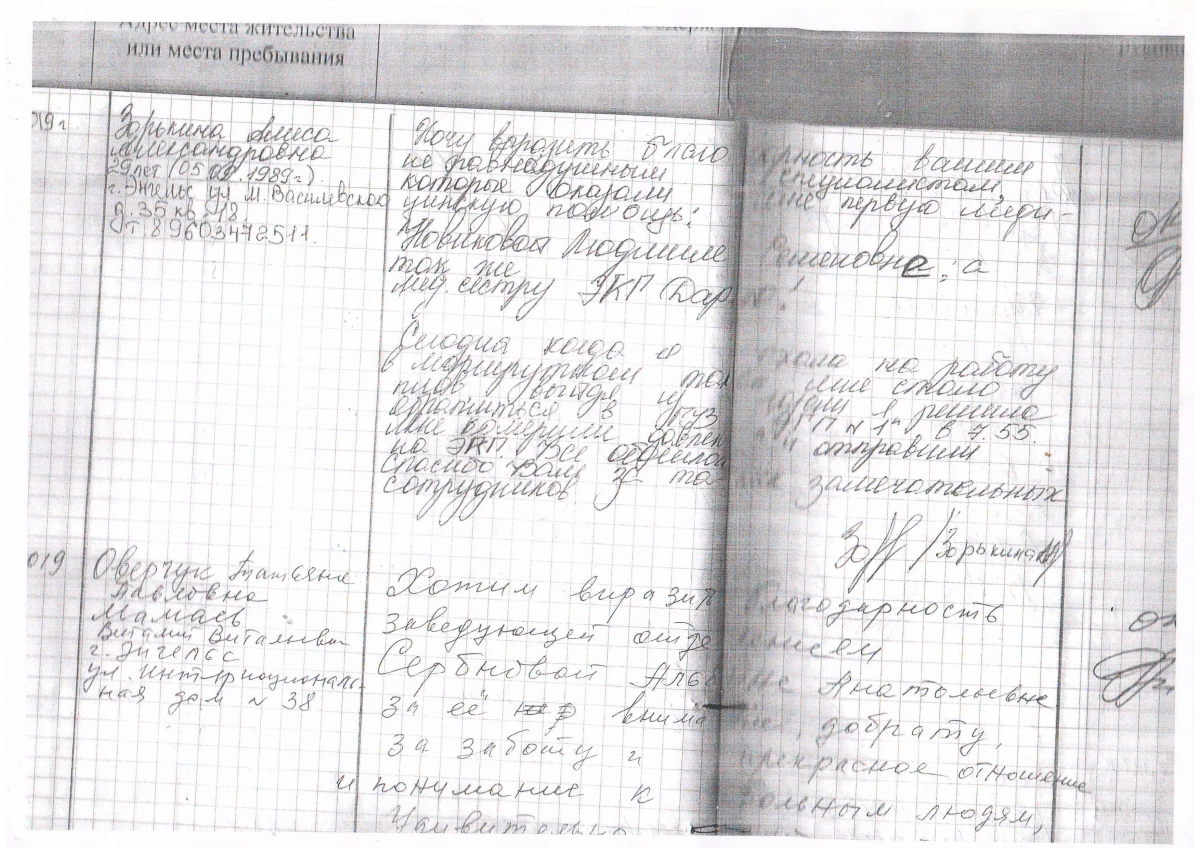 Адрес места жительства
или места пребывания
019 г
Зорькина Алиса
Александровна
29 лет (05. .1989г).
г. Энгельс ул. М. Василевского
д. 35 кв. 18.
т. 89603472511.
Хочу выразить благо дарность вашим
не равнодушным специалистам,
которые оказали мне первую меди-
цинскую помощь:
Новиковой Людмиле Семеновне; а
так же
мед. сестру ЭКГ Дар !
Сегодня когда я ехала на работу
в маршрутном так мне стало
плохо выйдя из я решила
обратиться в ГУЗ " ГП №1" в 7.55.
мне померили давлен отправили
на ЭКГ. Все обошлось
спасибо Вам за таких замечательных
сотрудников.
/Зорькина
019
Оверчук Татьяна
Павловна
Мамась
Виталий Витальевич
г. Энгельс
ул. Интернациональ-
ная дом № 38
Хотим виразить благодарность
заведующей отделением
Сербновой Альбине Анатольевне
за её внимание, доброту,
за заботу и прекрасное отношение
и понимание к больным людям,
Удивительно